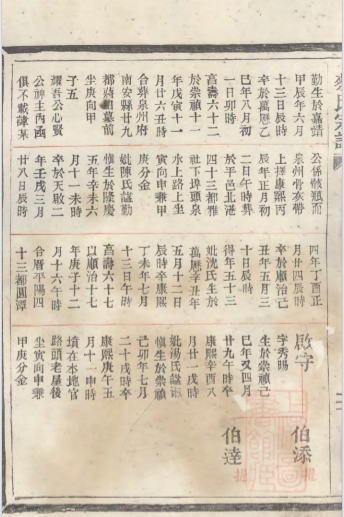 勤生於嘉靖
甲辰年六月
十三日辰時
卒於萬曆乙
巳年八月初
一日卯時
高壽六十二
於崇禎十一
年戊寅十一
月廿六丑時
合葬泉州府
南安縣廿九
都蔣細墓前
坐庚向甲
子五
耀吾公心賢
公神主內函
俱不載諱某
公係骸猶而
泉州骨灰帶
上擇康熙丙
辰年正月初
二日午時葬
於平邑北港
四十三都雅
社下埠頭泉
水上路上坐
寅向申兼甲
庚分金
妣陳氏諡勤
惟生於隆慶
五年辛未六
月十一未時
卒於天啟二
年壬戌三月
廿八日辰時
四年丁酉正
月廿四辰時
卒於順治己
丑年五月三
十日辰時
得年五十三
妣洪氏生於
萬曆辛丑年
五月十二日
辰時卒康熙
丁未年七月
十三日午時
高壽六十七
以順治十七
年庚子十二
月十六午時
合厝平陽四
十三都圓潭
啟守
字秀賜
生於崇禎己
巳年又四月
廿九午時卒
康熙辛酉八
月廿一戌時
妣湯氏諡淑
慎生於崇禎
己卯年七月
二十戌時卒
康熙庚午五
月十一申時
墳在本地官
路頭老屋後
坐寅向申兼
甲庚分金
伯添
伯達